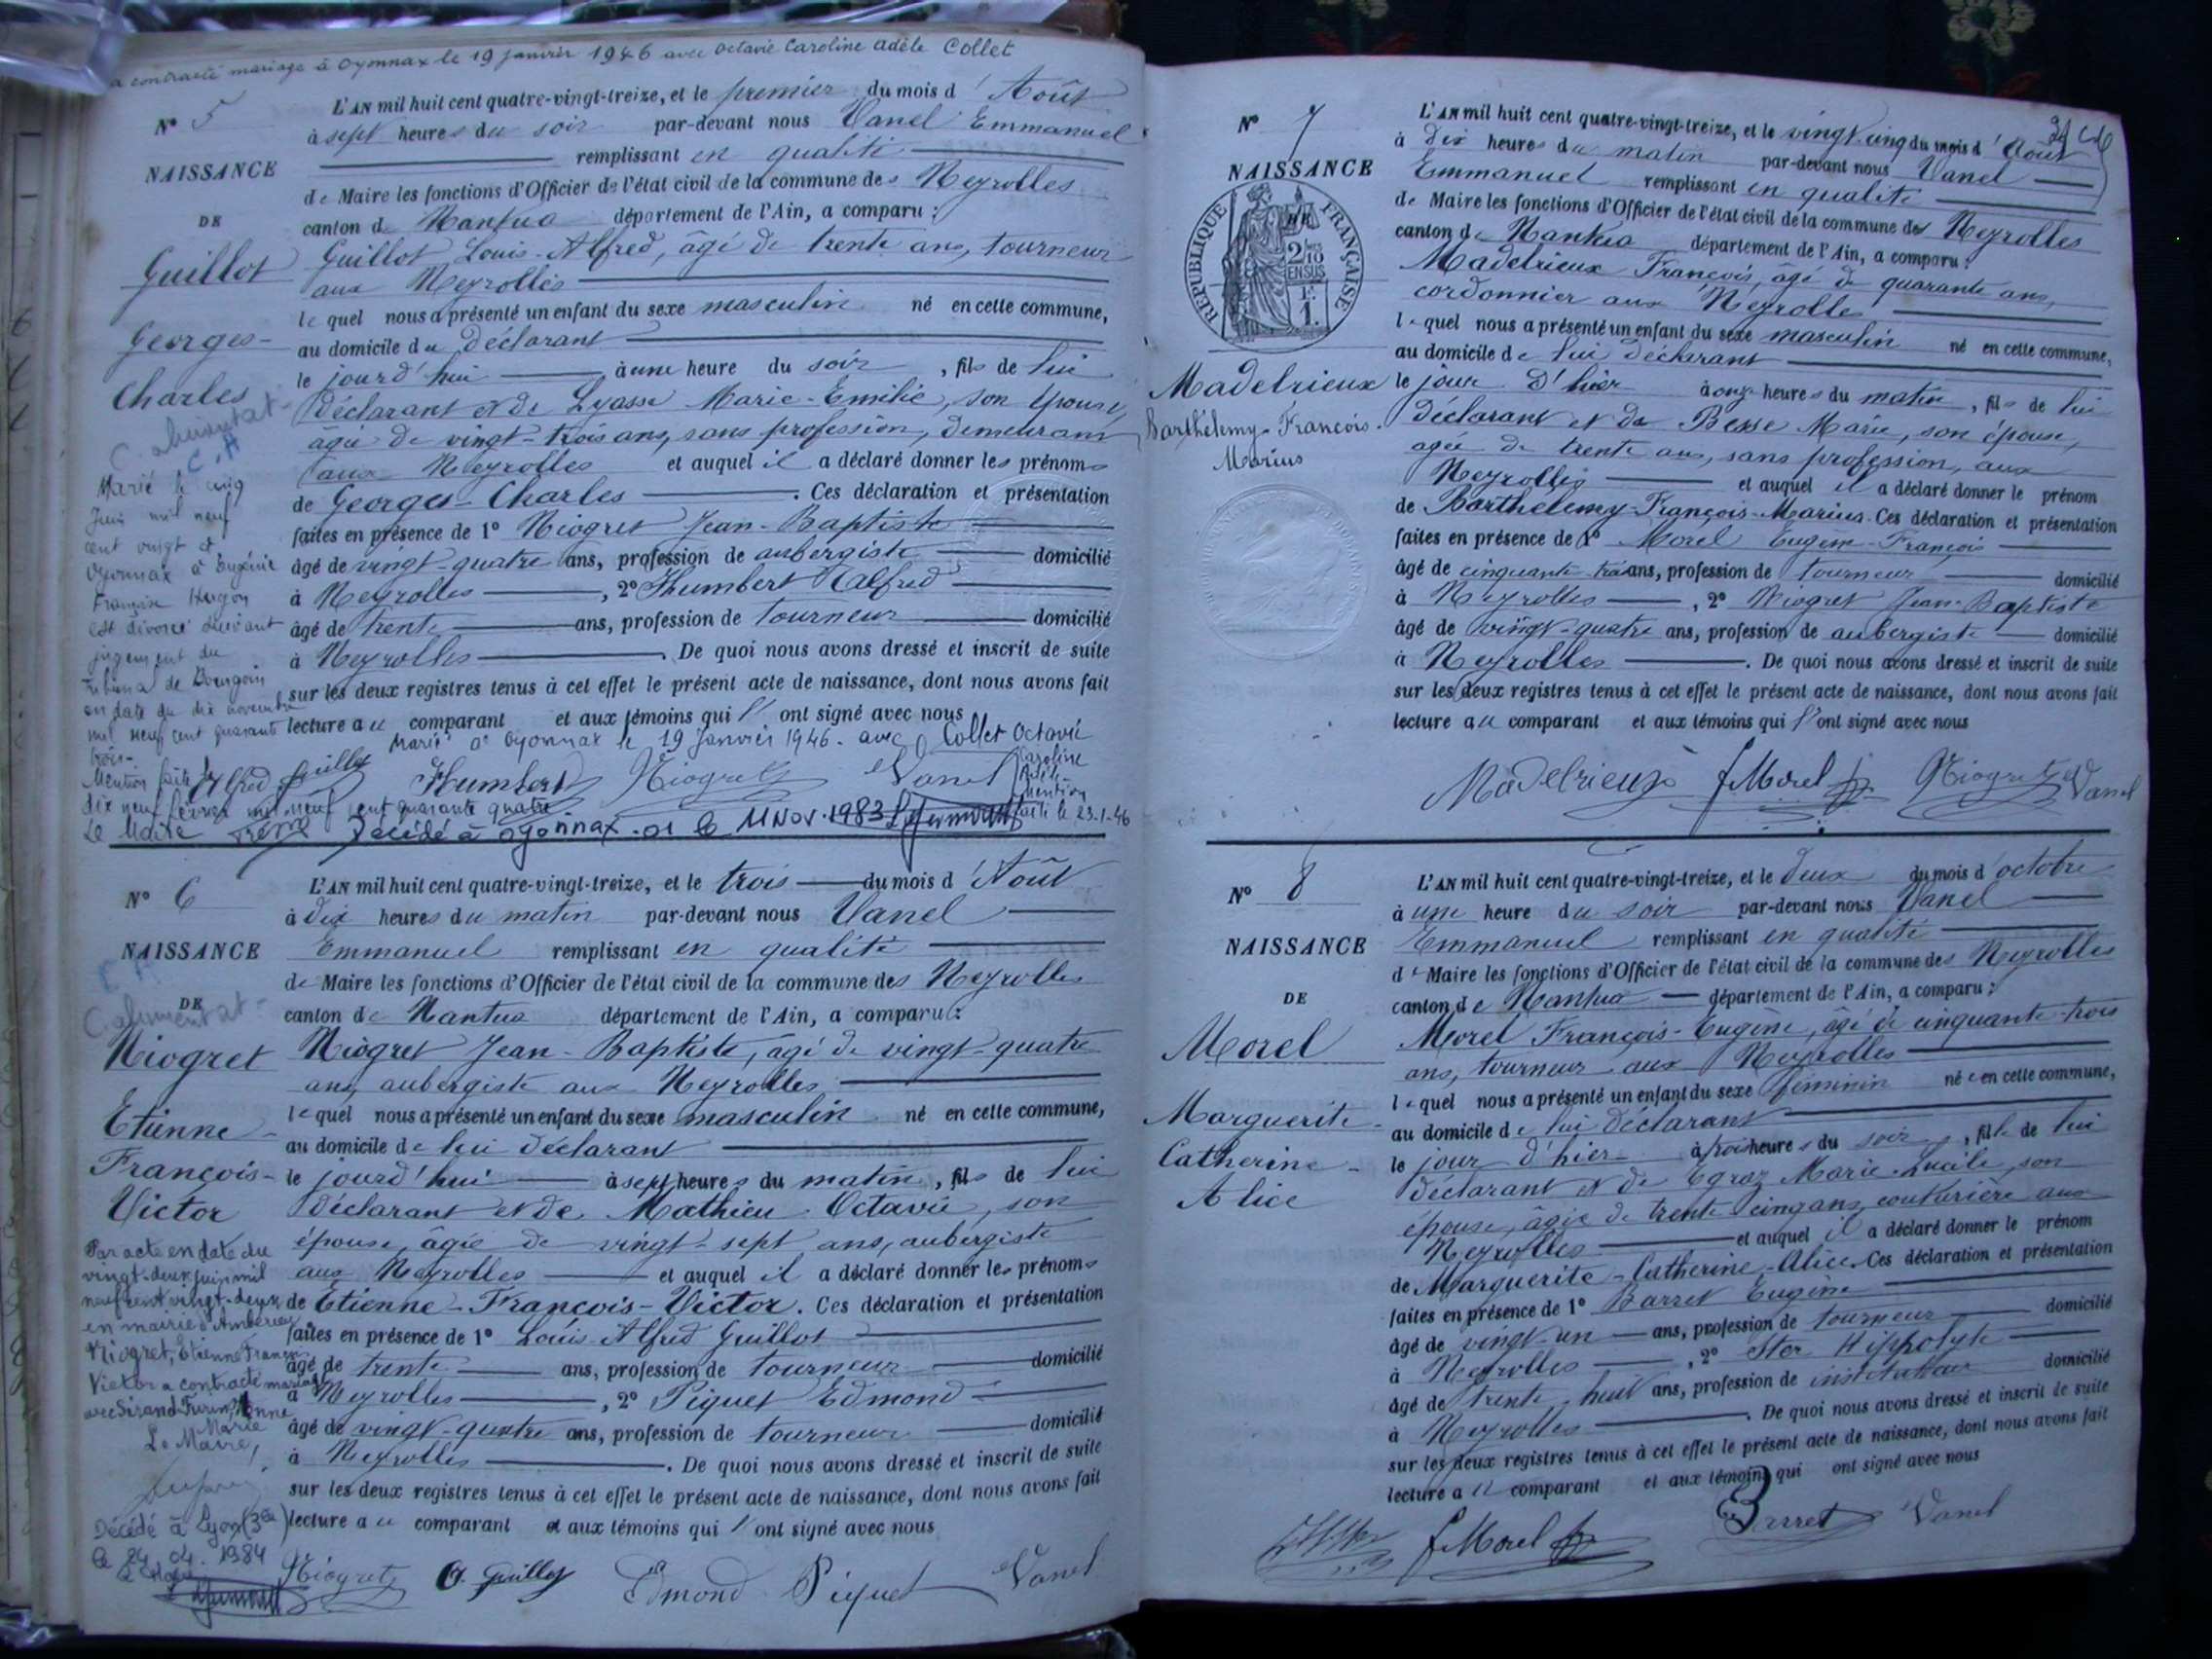 a contracté mariage à Oyonnax le 19 janvier 1946 avec Octavie Caroline Adèle Collet
N° 5
NAISSANCE
DE
Guillot
Georges-
Charles
Marié le cinq
Juin mil neuf
cent vingt et
Oyonnax à Eugénie
Françoise Hugon
est divorcé suivant
jugement du
tribunal de Bourgoin
en date du dix novembre
mil neuf cent quarante
trois-
Mention faite le
dix neuf février mil neuf cent quarante quatre
Le Maire
L'AN mil huit cent quatre-vingt-treize, et le premier du mois d'Août
à sept heures du soir par-devant nous Vanel Emmanuel
remplissant en qualité
de Maire les fonctions d'Officier de l'état civil de la commune des Neyrolles
canton de Nantua département de l'Ain, a comparu :
Guillot Louis-Alfred, âgé de trente ans, tourneur
aux Neyrolles
lequel nous a présenté un enfant du sexe masculin né en cette commune,
au domicile du déclarant
le jourd'hui à une heure du soir, fils de lui
déclarant et de Lyasse Marie-Emilie, son épouse,
âgée de vingt-trois ans, sans profession, demeurant
aux Neyrolles et auquel il a déclaré donner les prénoms
de Georges-Charles. Ces déclaration et présentation
faites en présence de 1° Niogret Jean-Baptiste
âgé de vingt-quatre ans, profession de aubergiste domicilié
à Neyrolles, 2° Humbert Alfred
âgé de trente ans, profession de tourneur domicilié
à Neyrolles. De quoi nous avons dressé et inscrit de suite
sur les deux registres tenus à cet effet le présent acte de naissance, dont nous avons fait
lecture au comparant et aux témoins qui l'ont signé avec nous
Marié à Oyonnax le 19 Janvier 1946. avec Collet Octavie
Caroline
Adèle
Mention
faite le 23-1-46
Alfred Guillot Humbert Niogret Vanel
Décédé à Oyonnax .01 le 11 Nov. 1983
N° 6
NAISSANCE
DE
Niogret
Etienne-
François-
Victor
Par acte en date du
vingt-deux juin mil
neuf cent vingt-deux
en mairie d'Ambérieu
Niogret, Etienne François
Victor a contracté mariage
avec Sirand-Furin, Anne
Marie
Le Maire,
Décédé à Lyon (3e)
le 24.04.1984
L'AN mil huit cent quatre-vingt-treize, et le trois du mois d'Août
à dix heures du matin par-devant nous Vanel
Emmanuel remplissant en qualité
de Maire les fonctions d'Officier de l'état civil de la commune des Neyrolles
canton de Nantua département de l'Ain, a comparu :
Niogret Jean-Baptiste, âgé de vingt-quatre
ans, aubergiste aux Neyrolles
lequel nous a présenté un enfant du sexe masculin né en cette commune,
au domicile de lui déclarant
le jourd'hui à sept heures du matin, fils de lui
déclarant et de Mathieu Octavie, son
épouse, âgée de vingt-sept ans, aubergiste
aux Neyrolles et auquel il a déclaré donner les prénoms
de Etienne-François-Victor. Ces déclaration et présentation
faites en présence de 1° Louis-Alfred Guillot
âgé de trente ans, profession de tourneur domicilié
à Neyrolles, 2° Piquet Edmond
âgé de vingt-quatre ans, profession de tourneur domicilié
à Neyrolles. De quoi nous avons dressé et inscrit de suite
sur les deux registres tenus à cet effet le présent acte de naissance, dont nous avons fait
lecture au comparant et aux témoins qui l'ont signé avec nous
Niogret A. Guillot Edmond Piquet Vanel
N° 7
NAISSANCE
RÉPUBLIQUE FRANÇAISE
2/10 EN SUS
F. 1.
Madelrieux
Barthélemy-François-
Marius
L'AN mil huit cent quatre-vingt-treize, et le vingt-cinq du mois d'Août
à dix heures du matin par-devant nous Vanel
Emmanuel remplissant en qualité
de Maire les fonctions d'Officier de l'état civil de la commune des Neyrolles
canton de Nantua département de l'Ain, a comparu :
Madelrieux François, âgé de quarante ans,
cordonnier aux Neyrolles
lequel nous a présenté un enfant du sexe masculin né en cette commune,
au domicile de lui déclarant
le jour d'hier à onze heures du matin, fils de lui
déclarant et de Besse Marie, son épouse,
agée de trente ans, sans profession, aux
Neyrolles et auquel il a déclaré donner le prénom
de Barthelemy-François-Marius. Ces déclaration et présentation
faites en présence de 1° Morel Eugène-François
âgé de cinquante-trois ans, profession de tourneur domicilié
à Neyrolles, 2° Niogret Jean-Baptiste
âgé de vingt-quatre ans, profession de aubergiste domicilié
à Neyrolles. De quoi nous avons dressé et inscrit de suite
sur les deux registres tenus à cet effet le présent acte de naissance, dont nous avons fait
lecture au comparant et aux témoins qui l'ont signé avec nous
Madelrieux f Morel Niogret Vanel
N° 8
NAISSANCE
DE
Morel
Marguerite-
Catherine-
Alice
L'AN mil huit cent quatre-vingt-treize, et le deux du mois d'octobre
à une heure du soir par-devant nous Vanel
Emmanuel remplissant en qualité
de Maire les fonctions d'Officier de l'état civil de la commune des Neyrolles
canton de Nantua département de l'Ain, a comparu :
Morel François-Eugène, âgé de cinquante-trois
ans, tourneur aux Neyrolles
lequel nous a présenté un enfant du sexe féminin née en cette commune,
au domicile de lui déclarant
le jour d'hier à trois heures du soir, fille de lui
déclarant et de Egraz Marie-Lucile, son
épouse, âgée de trente-cinq ans, couturière aux
Neyrolles et auquel il a déclaré donner le prénom
de Marguerite-Catherine-Alice. Ces déclaration et présentation
faites en présence de 1° Barret Eugène
âgé de vingt-un ans, profession de tourneur domicilié
à Neyrolles, 2° Ster Hippolyte
âgé de trente-huit ans, profession de instituteur domicilié
à Neyrolles. De quoi nous avons dressé et inscrit de suite
sur les deux registres tenus à cet effet le présent acte de naissance, dont nous avons fait
lecture au comparant et aux témoins qui ont signé avec nous
f Morel Barret Vanel